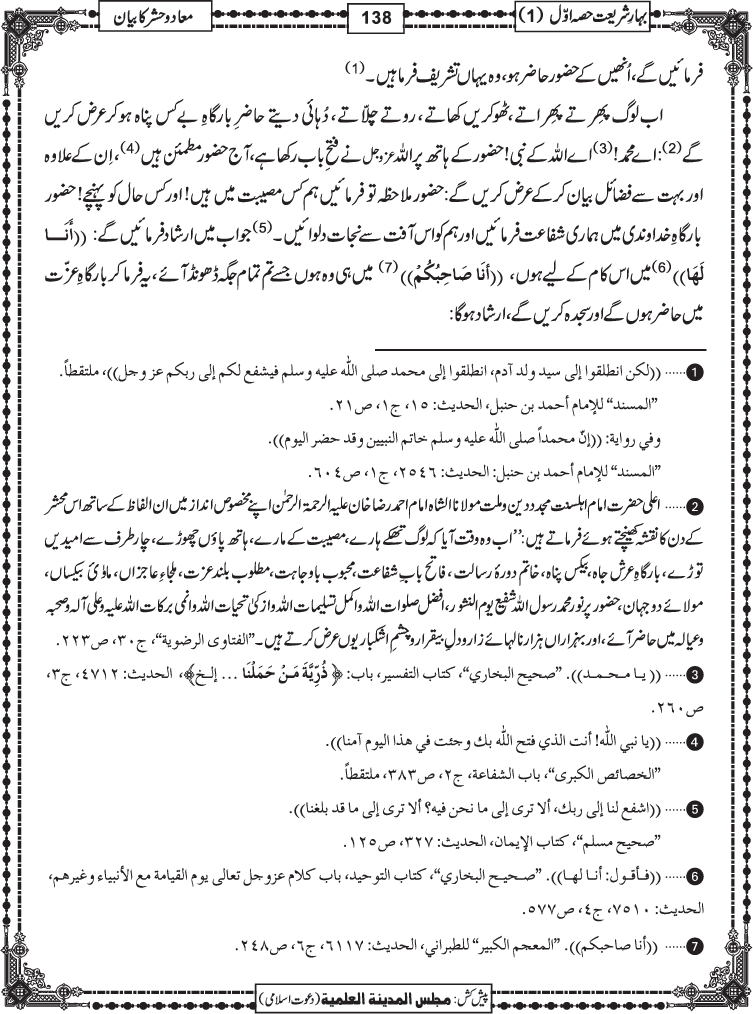 بہارِ شریعت حصہ اوّل (1)
138
معاد و حشر کا بیان
فرمائیں گے، اُنھیں کے حضور حاضر ہو، وہ یہاں تشریف فرما ہیں۔ (1)
اب لوگ پھِرتے پھِراتے، ٹھوکریں کھاتے، روتے چلّاتے، دُہائی دیتے حاضرِ بارگاہِ بے کس پناہ ہو کر عرض کریں
گے (2): اے محمد! (3) اے اللہ کے نبی! حضور کے ہاتھ پر اللہ عزوجل نے فتحِ باب رکھا ہے، آج حضور مطمئن ہیں (4)، اِن کے علاوہ
اور بہت سے فضائل بیان کرکے عرض کریں گے: حضور ملاحظہ تو فرمائیں ہم کس مصیبت میں ہیں! اور کس حال کو پہنچے! حضور
بارگاہِ خداوندی میں ہماری شفاعت فرمائیں اور ہم کو اس آفت سے نجات دلوائیں۔ (5) جواب میں ارشاد فرمائیں گے: ((أَنَا
لَهَا)) (6) میں اس کام کے لیے ہوں، ((أَنَا صَاحِبُكُمْ)) (7) میں ہی وہ ہوں جسے تم تمام جگہ ڈھونڈ آئے، یہ فرما کر بارگاہِ عزّت
میں حاضر ہوں گے اور سجدہ کریں گے، ارشاد ہوگا:
1 ...... ((لكن انطلقوا إلى سيد ولد آدم، انطلقوا إلى محمد صلى الله عليه وسلم فيشفع لكم إلى ربكم عز وجل))، ملتقطاً.
”المسند“ للإمام أحمد بن حنبل، الحديث: ١٥، ج١، ص٢١.
وفي رواية: ((إنّ محمداً صلى الله عليه وسلم خاتم النبيين وقد حضر اليوم)).
”المسند“ للإمام أحمد بن حنبل: الحديث: ٢٥٤٦، ج١، ص٦٠٤.
2 ...... اعلی حضرت امام اہلسنت مجدد دین وملت مولانا الشاہ امام احمد رضا خان علیہ الرحمۃ الرحمٰن اپنے مخصوص انداز میں ان الفاظ کے ساتھ اس محشر
کے دن کا نقشہ کھینچتے ہوئے فرماتے ہیں: ’’اب وہ وقت آیا کہ لوگ تھکے ہارے، مصیبت کے مارے، ہاتھ پاؤں چھوڑے، چار طرف سے امیدیں
توڑے، بارگاہِ عرش جاہ، بیکس پناہ، خاتم دورۂ رسالت، فاتح باب شفاعت، محبوب باوجاہت، مطلوب بلند عزت، ملجاءِ عاجزاں، ماوٰئ بیکساں،
مولائے دو جہان، حضور پر نور محمد رسول اللہ شفیع یوم النشور، افضل صلوات اللہ واکمل تسلیمات اللہ وازکٰی تحیات اللہ وانمی برکات اللہ علیہ وعلی آلہ وصحبہ
وعیالہ میں حاضر آئے، اور بہزاراں ہزار نالہائے زار و دلِ بیقرار و چشمِ اشکبار یوں عرض کرتے ہیں۔ ”الفتاوى الرضوية“، ج٣٠، ص٢٢٣.
3 ...... ((يا محمد)). ”صحيح البخاري“، كتاب التفسير، باب: ﴿ ذُرِّيَّةَ مَنْ حَمَلْنَا ... إلخ﴾، الحديث: ٤٧١٢، ج٣،
ص٢٦٠.
4 ...... ((يا نبي الله! أنت الذي فتح الله بك وجئت في هذا اليوم آمنا)).
”الخصائص الكبرى“، باب الشفاعة، ج٢، ص٣٨٣، ملتقطاً.
5 ...... ((اشفع لنا إلى ربك، ألا ترى إلى ما نحن فيه؟ ألا ترى إلى ما قد بلغنا)).
”صحيح مسلم“، كتاب الإيمان، الحديث: ٣٢٧، ص١٢٥.
6 ...... ((فأقول: أنا لها)). ”صحيح البخاري“، كتاب التوحيد، باب كلام عزوجل تعالى يوم القيامة مع الأنبياء وغيرهم،
الحديث: ٧٥١٠، ج٤، ص٥٧٧.
7 ...... ((أنا صاحبكم)). ”المعجم الكبير“ للطبراني، الحديث: ٦١١٧، ج٦، ص٢٤٨.
پیش کش: مجلس المدينة العلمية (دعوت اسلامی)